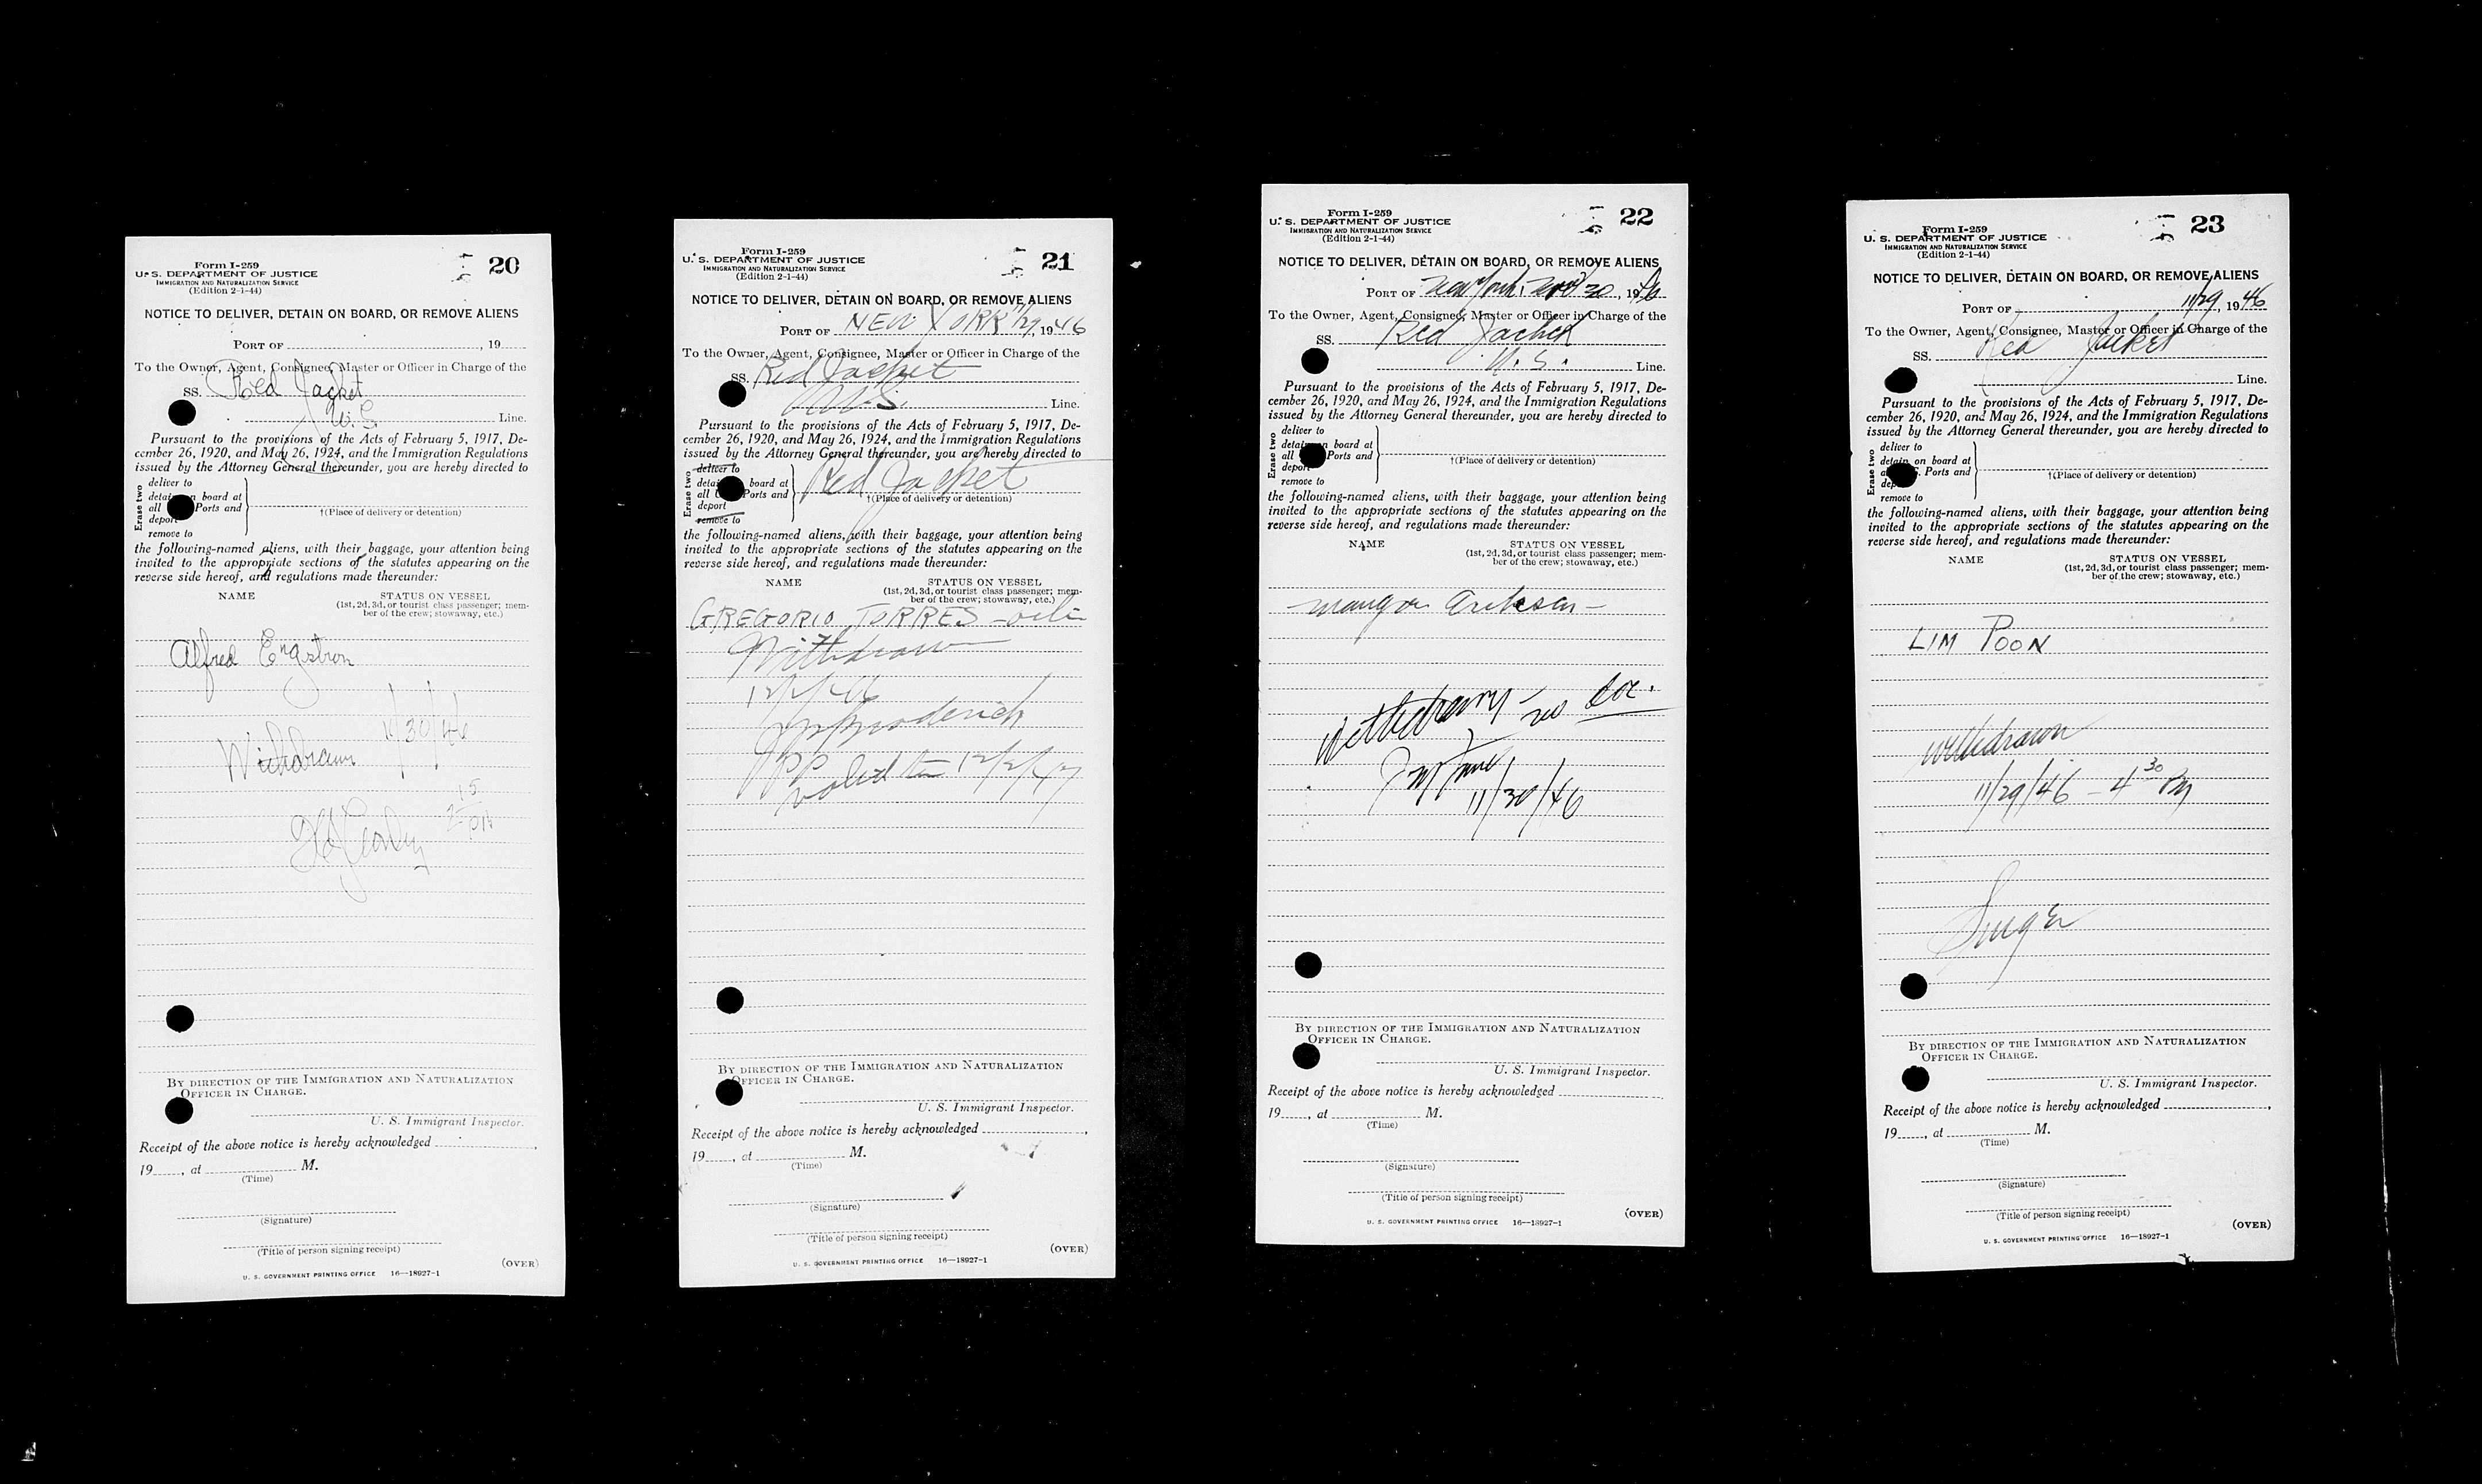 Form I-259
U. S. DEPARTMENT OF JUSTICE
IMMIGRATION AND NATURALIZATION SERVICE
(Edition 2-1-44)
20
NOTICE TO DELIVER, DETAIN ON BOARD, OR REMOVE ALIENS
PORT OF , 19
To the Owner, Agent, Consignee, Master or Officer in Charge of the
SS. Red Jacket
U.S. Line.
Pursuant to the provisions of the Acts of February 5, 1917, De-
cember 26, 1920, and May 26, 1924, and the Immigration Regulations
issued by the Attorney General thereunder, you are hereby directed to
Erase two
deliver to
detain on board at
all Ports and
deport
remove to
†(Place of delivery or detention)
the following-named aliens, with their baggage, your attention being
invited to the appropriate sections of the statutes appearing on the
reverse side hereof, and regulations made thereunder:
NAME STATUS ON VESSEL
(1st, 2d, 3d, or tourist class passenger; mem-
ber of the crew; stowaway, etc.)
Alfred Engstron
Withdrawn 11/30/46
2 15 PM
BY DIRECTION OF THE IMMIGRATION AND NATURALIZATION
OFFICER IN CHARGE.
U. S. Immigrant Inspector.
Receipt of the above notice is hereby acknowledged
19 , at M.
(Time)
(Signature)
(Title of person signing receipt)
(OVER)
U. S. GOVERNMENT PRINTING OFFICE 16—18927-1
Form I-259
U. S. DEPARTMENT OF JUSTICE
IMMIGRATION AND NATURALIZATION SERVICE
(Edition 2-1-44)
21
NOTICE TO DELIVER, DETAIN ON BOARD, OR REMOVE ALIENS
PORT OF NEW YORK 11/29, 1946
To the Owner, Agent, Consignee, Master or Officer in Charge of the
SS. Red Jacket
U.S. Line.
Pursuant to the provisions of the Acts of February 5, 1917, De-
cember 26, 1920, and May 26, 1924, and the Immigration Regulations
issued by the Attorney General thereunder, you are hereby directed to
Erase two
deliver to
detain board at
all U Ports and
deport
remove to
Red Jacket
†(Place of delivery or detention)
the following-named aliens, with their baggage, your attention being
invited to the appropriate sections of the statutes appearing on the
reverse side hereof, and regulations made thereunder:
NAME STATUS ON VESSEL
(1st, 2d, 3d, or tourist class passenger; mem-
ber of the crew; stowaway, etc.)
GREGORIO TORRES
Withdrawn
12/2/46
PP
valid to 12/2/47
BY DIRECTION OF THE IMMIGRATION AND NATURALIZATION
OFFICER IN CHARGE.
U. S. Immigrant Inspector.
Receipt of the above notice is hereby acknowledged
19 , at M.
(Time)
(Signature)
(Title of person signing receipt)
(OVER)
U. S. GOVERNMENT PRINTING OFFICE 16—18927-1
Form I-259
U. S. DEPARTMENT OF JUSTICE
IMMIGRATION AND NATURALIZATION SERVICE
(Edition 2-1-44)
22
NOTICE TO DELIVER, DETAIN ON BOARD, OR REMOVE ALIENS
PORT OF New York, Nov 30, 1946
To the Owner, Agent, Consignee, Master or Officer in Charge of the
SS. Red Jacket
U. S. Line.
Pursuant to the provisions of the Acts of February 5, 1917, De-
cember 26, 1920, and May 26, 1924, and the Immigration Regulations
issued by the Attorney General thereunder, you are hereby directed to
Erase two
deliver to
detain on board at
all Ports and
deport
remove to
†(Place of delivery or detention)
the following-named aliens, with their baggage, your attention being
invited to the appropriate sections of the statutes appearing on the
reverse side hereof, and regulations made thereunder:
NAME STATUS ON VESSEL
(1st, 2d, 3d, or tourist class passenger; mem-
ber of the crew; stowaway, etc.)
Withdrawn - no
11/30/46
BY DIRECTION OF THE IMMIGRATION AND NATURALIZATION
OFFICER IN CHARGE.
U. S. Immigrant Inspector.
Receipt of the above notice is hereby acknowledged
19 , at M.
(Time)
(Signature)
(Title of person signing receipt)
(OVER)
U. S. GOVERNMENT PRINTING OFFICE 16—18927-1
Form I-259
U. S. DEPARTMENT OF JUSTICE
IMMIGRATION AND NATURALIZATION SERVICE
(Edition 2-1-44)
23
NOTICE TO DELIVER, DETAIN ON BOARD, OR REMOVE ALIENS
PORT OF 11/29, 1946
To the Owner, Agent, Consignee, Master or Officer in Charge of the
SS. Red Jacket
Line.
Pursuant to the provisions of the Acts of February 5, 1917, De-
cember 26, 1920, and May 26, 1924, and the Immigration Regulations
issued by the Attorney General thereunder, you are hereby directed to
Erase two
deliver to
detain on board at
S. Ports and
remove to
†(Place of delivery or detention)
the following-named aliens, with their baggage, your attention being
invited to the appropriate sections of the statutes appearing on the
reverse side hereof, and regulations made thereunder:
NAME STATUS ON VESSEL
(1st, 2d, 3d, or tourist class passenger; mem-
ber of the crew; stowaway, etc.)
LIM POON
Withdrawn
11/29/46 - 4 30 PM
Singer
BY DIRECTION OF THE IMMIGRATION AND NATURALIZATION
OFFICER IN CHARGE.
U. S. Immigrant Inspector.
Receipt of the above notice is hereby acknowledged
19 , at M.
(Time)
(Signature)
(Title of person signing receipt)
(OVER)
U. S. GOVERNMENT PRINTING OFFICE 16—18927-1